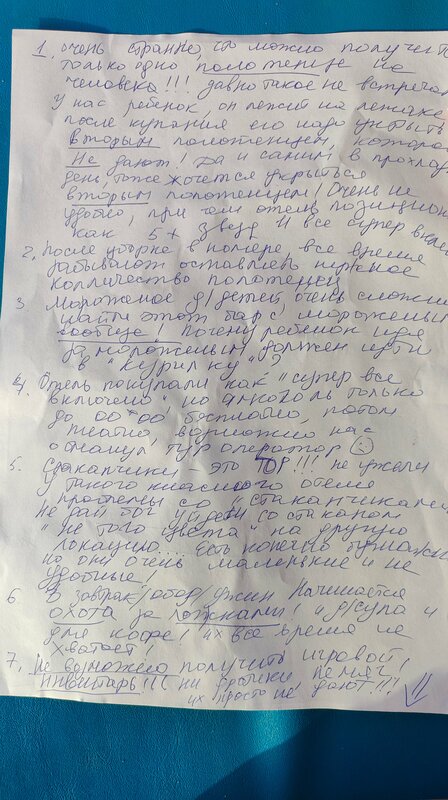 1. очень странно, что можно получить
только одно полотенце на
человека!!! давно такое не встречал
У нас ребенок, он лежит на лежаке
после купания его надо укрыть
Вторым полотенцем, которое
Не дают! да и самим в прохлад
день, тоже хочется укрыться
вторым полотенцем! Очень не
удобно, при чем отель позициони
как 5+ звезд и все супер включ
2. После уборке в номере все время
забывают оставлять нужное
колличество полотенец
3 Мороженое д/детей очень сложно
найти этот бар с мороженым
вообще! Почему ребенок идя
за мороженым должен идти
в "курилку"?
4. Отель покупали как "супер все
включено" но алкоголь только
до 00 00 бесплатно, потом
платно, возможно нас
обманул тур оператор
5. Стаканчики - это ТОР!!! не ужели
у такого классного отеля
проблемы со "стаканчиками
не дай бог уйдешь со стаканом
"не того цвета" на другую
локацию.... Есть конечно бумажн
но они очень маленькие и не
удобные!
6 В завтрак/обед/ужин Начинается
охота за ложками! и д/супа и
для кофе! их все время не
хватает!
7. Не возможно получить игровой
инвентарь!!! ни
их просто не дают!!!